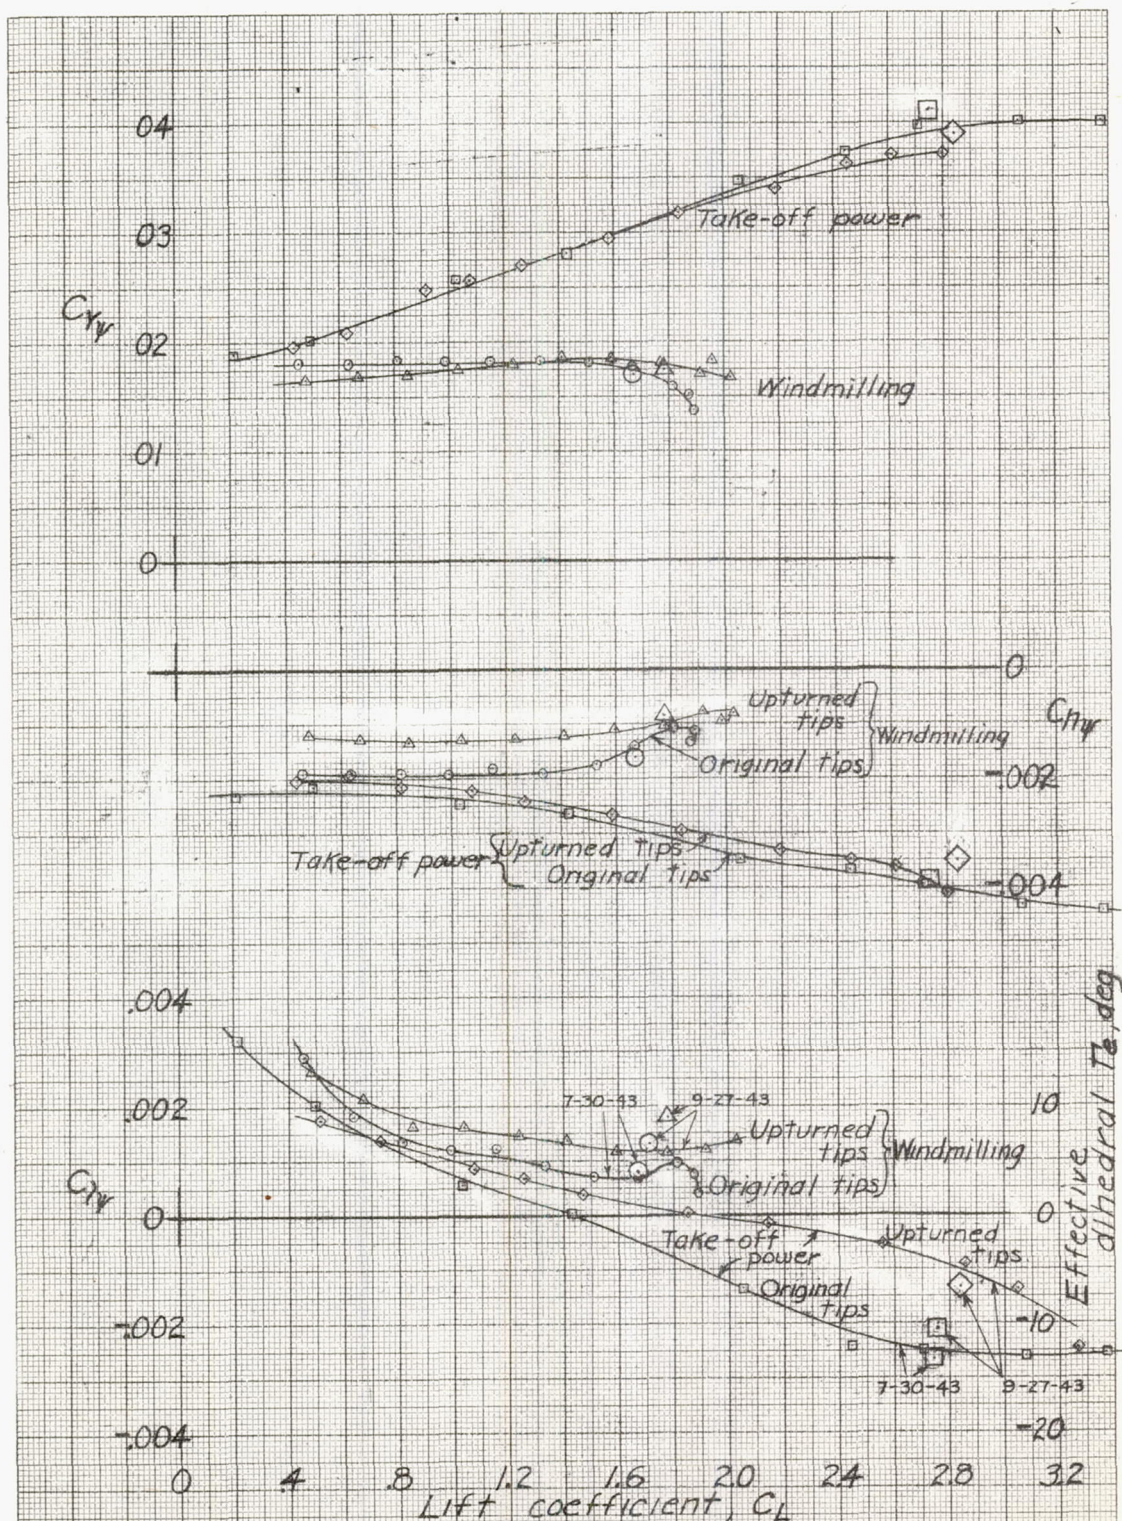 04
03
C_Yψ
02
01
0
Take-off power
Windmilling
0
C_nψ
-.002
-.004
Upturned
tips
Original tips
Windmilling
Take-off power
Upturned tips
Original tips
.004
.002
C_lψ
0
-.002
-.004
7-30-43
9-27-43
Upturned
tips
Original tips
Windmilling
Take-off
power
Upturned
tips
Original
tips
7-30-43
9-27-43
10
0
-10
-20
Effective
dihedral Γe, deg
0 .4 .8 1.2 1.6 2.0 2.4 2.8 3.2
Lift coefficient, C_L